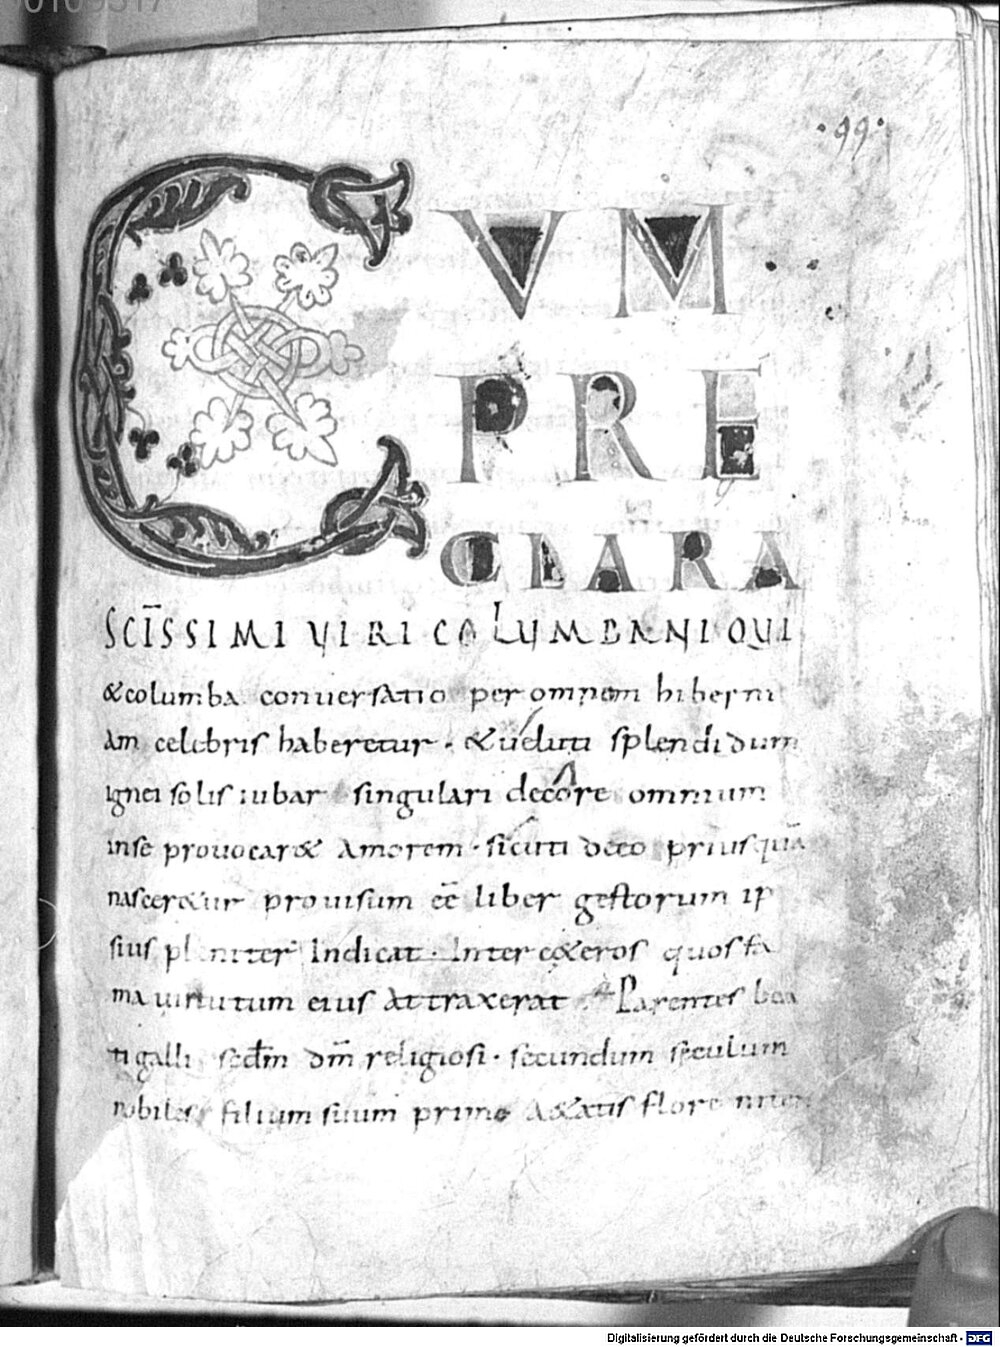 ·99·
CVM
PRE
CLARA
SCĪSSIMI VIRI COLUMBANI QUI
&columba conuersatio per omnem hiberni
am celebris haberetur · & ueluti splendidum
ignei solis iubar singulari decore omnium
inse prouocar& amorem · sicuti deeo priusquā
nascer&ur prouisum eē liber gestorum ip
sius pleniter Indicat · Inter c&eros quos fa
ma uirtutum eius attraxerat · Parentes bea
ti galli secdm dm̄ religiosi · secundum seculum
nobiles filium suum primo &atis flore niten
Digitalisierung gefördert durch die Deutsche Forschungsgemeinschaft - DFG